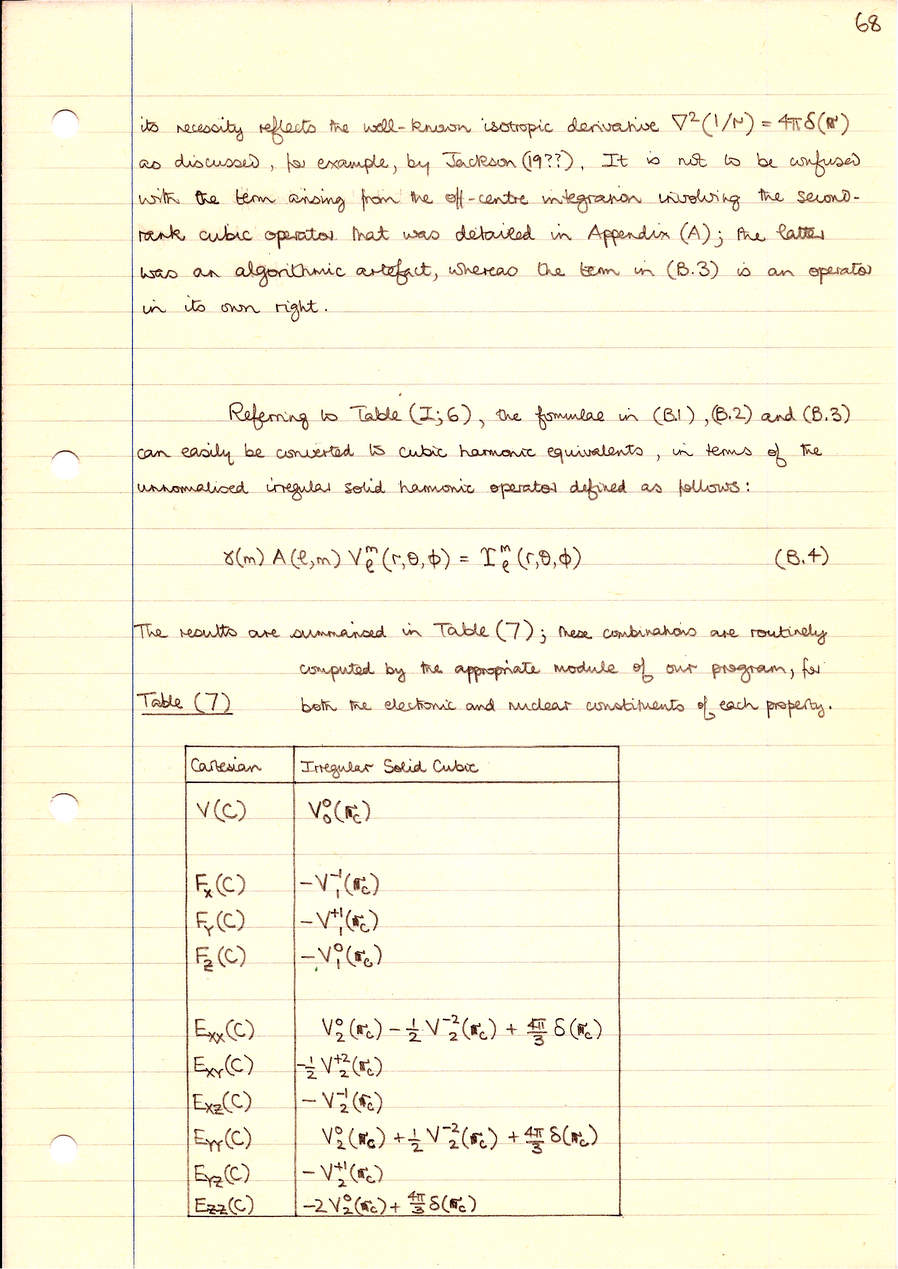 68
its necessity reflects the well-known isotropic derivative ∇²(1/r) = 4πδ(r)
as discussed, for example, by Jackson (19??). It is not to be confused
with the term arising from the off-centre integration involving the second-
rank cubic operator that was detailed in Appendix (A); the latter
was an algorithmic artefact, whereas the term in (B.3) is an operator
in its own right.
Referring to Table (I;6), the formulae in (B.1), (B.2) and (B.3)
can easily be converted to cubic harmonic equivalents, in terms of the
unnormalised irregular solid harmonic operator defined as follows:
γ(m) A(ℓ,m) V_ℓ^m (r,θ,φ) = I_ℓ^m (r,θ,φ) (B.4)
The results are summarised in Table (7); these combinations are routinely
computed by the appropriate module of our program, for
Table (7) both the electronic and nuclear constituents of each property.
Cartesian Irregular Solid Cubic
V(C) V_0^0(r_c)
F_x(C) -V_1^-1(r_c)
F_Y(C) -V_1^+1(r_c)
F_Z(C) -V_1^0(r_c)
E_XX(C) V_2^0(r_c) - 1/2 V_2^-2(r_c) + 4π/3 δ(r_c)
E_XY(C) -1/2 V_2^+2(r_c)
E_XZ(C) -V_2^-1(r_c)
E_YY(C) V_2^0(r_c) + 1/2 V_2^-2(r_c) + 4π/3 δ(r_c)
E_YZ(C) -V_2^+1(r_c)
E_ZZ(C) -2V_2^0(r_c) + 4π/3 δ(r_c)